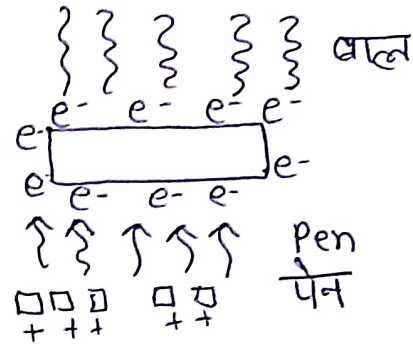 बाल
e- e- e- e-
e-
e-
e e- e- e-
Pen
पेन
+ + + + +